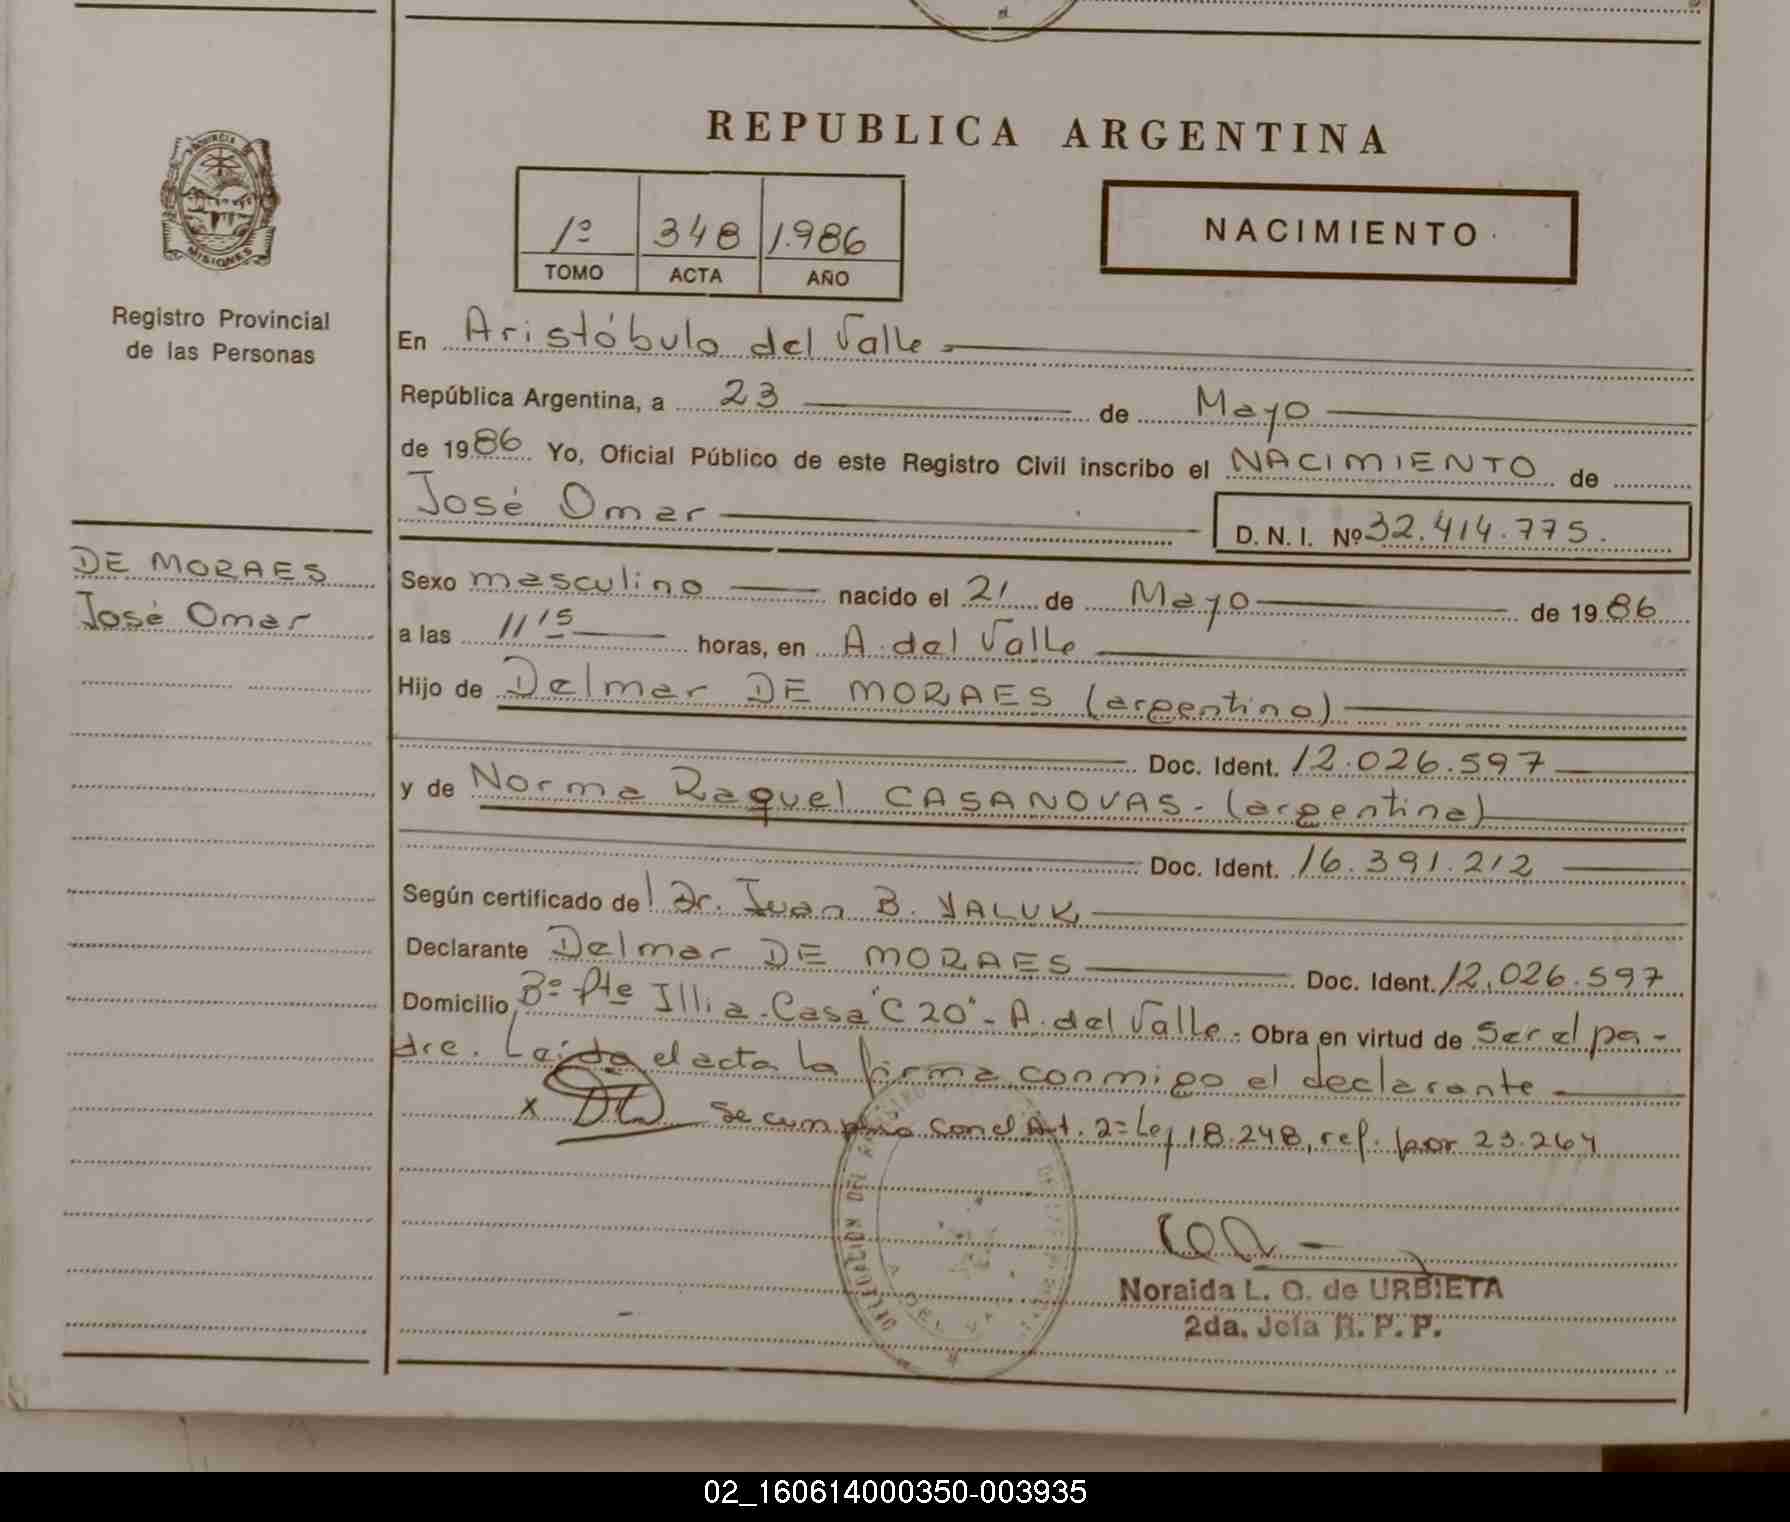 REPUBLICA ARGENTINA
PROVINCIA
MISIONES
Registro Provincial
de las Personas
1º 348 1.986
TOMO ACTA AÑO
NACIMIENTO
En Aristóbulo del Valle
República Argentina, a 23 de Mayo
de 1986 Yo, Oficial Público de este Registro Civil inscribo el NACIMIENTO de
José Omar D. N. I. Nº 32.414.775.
DE MORAES
José Omar
Sexo masculino nacido el 21 de Mayo de 1986
a las 11 15 horas, en A. del Valle
Hijo de Delmar DE MORAES (argentino)
Doc. Ident. 12.026.597
y de Norma Raquel CASANOVAS - (argentina)
Doc. Ident. 16.391.212
Según certificado de Dr. Juan B. YALUK
Declarante Delmar DE MORAES Doc. Ident. 12.026.597
Domicilio Bº Pte Illia - Casa "C 20" - A. del Valle - Obra en virtud de ser el pa-
dre. Leída el acta la firma conmigo el declarante
x Se cumplió con el Art. 2º Ley 18.248, ref. por 23.264
DELEGACION DEL
A. DEL VA
Noraida L. O. de URBIETA
2da. Jefa R. P. P.
02_160614000350-003935